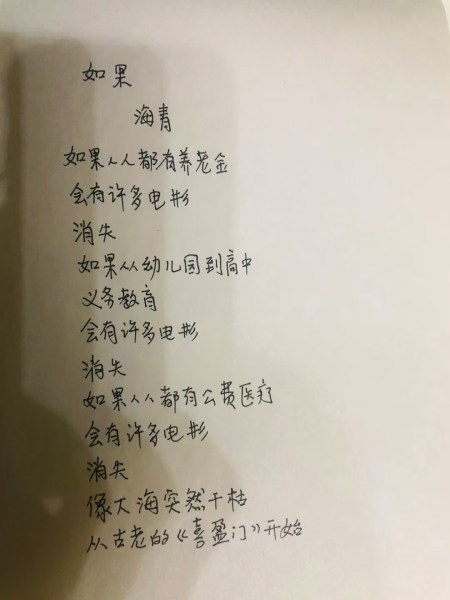 如果
海青
如果人人都有养老金
会有许多电影
消失
如果从幼儿园到高中
义务教育
会有许多电影
消失
如果人人都有公费医疗
会有许多电影
消失
像大海突然干枯
从古老的《喜盈门》开始